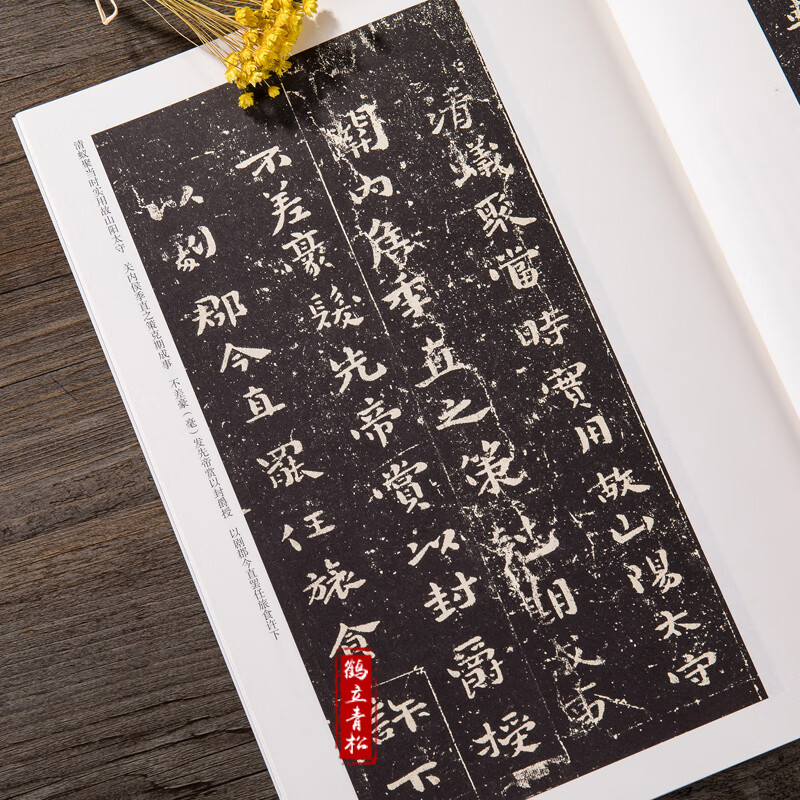 清蟻聚當時實用故山陽太守
關內侯季直之策尅期成事
不差豪髮先帝賞以封爵授
以劇郡今直罷任旅食許下
清蚁聚当时实用故山阳太守 关内侯季直之策克期成事 不差豪(毫)发先帝赏以封爵授 以剧郡今直罢任旅食许下
鹤立青松